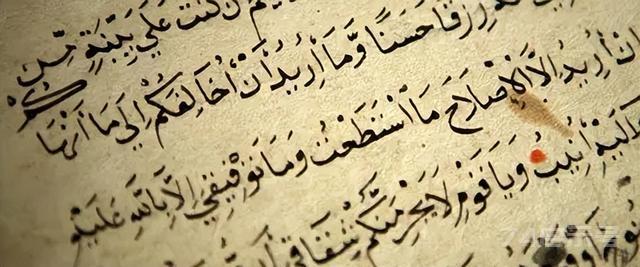 كُنتُ عَلَى بَيِّنَةٍ مِّن
رِزْقًا حَسَنًا وَّمَا أُرِيدُ أَنْ أُخَالِفَكُمْ إِلَى مَا أَنْهَا
كُمْ
إِنْ أُرِيدُ إِلاَّ الْإِصْلَاحَ مَا اسْتَطَعْتُ وَمَا تَوْفِيقِي إِلاَّ بِاللهِ عَلَيْهِ
وَإِلَيْهِ أُنِيبُ وَيَا قَوْمِ لَا يَجْرِمَنَّكُمْ شِقَاقِي